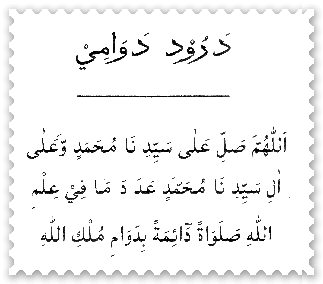 دَرُوْد دَوَامِيْ
اَللّٰهُمَّ صَلِّ عَلٰى سَيِّدِ نَا مُحَمَدٍ وَّعَلٰى
اٰلِ سَيِّدِ نَا مُحَمَّدٍ عَدَ دَ مَا فِيْ عِلْمِ
اللهِ صَلَوَاةً دَٓائِمَةً بِدَوَامِ مُلْكِ اللهِ